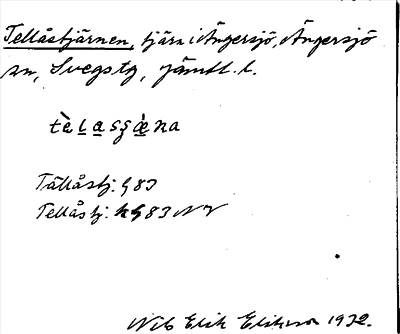 Tellåstjärnen, tjärn i Ängersjö, Ängersjö
sn, Svegs tg, Jämtl. l.
tèlasʒæ̀na
Tällåstj. G 83
Tellåstj. KG 83 NV
Nils Erik Erikson 1932.